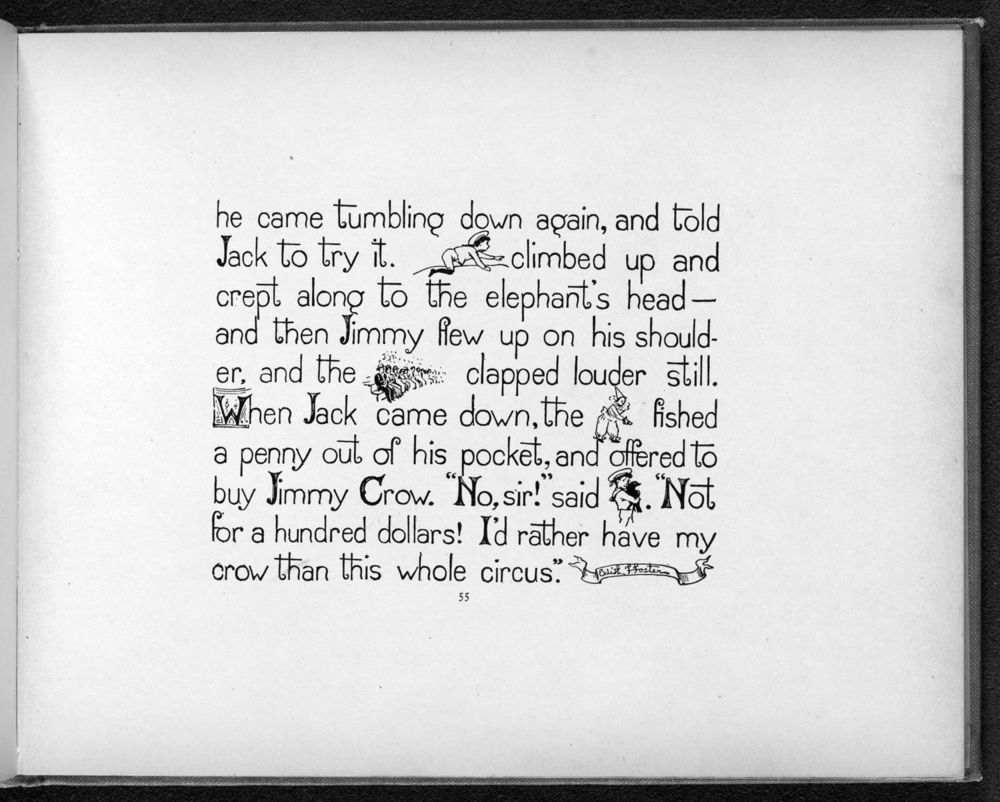 he came tumbling down again, and told
Jack to try it. climbed up and
crept along to the elephant's head—
and then Jimmy flew up on his should-
er, and the clapped louder still.
When Jack came down, the fished
a penny out of his pocket, and offered to
buy Jimmy Crow. "No, sir!" said . "Not
for a hundred dollars! I'd rather have my
crow than this whole circus."
55